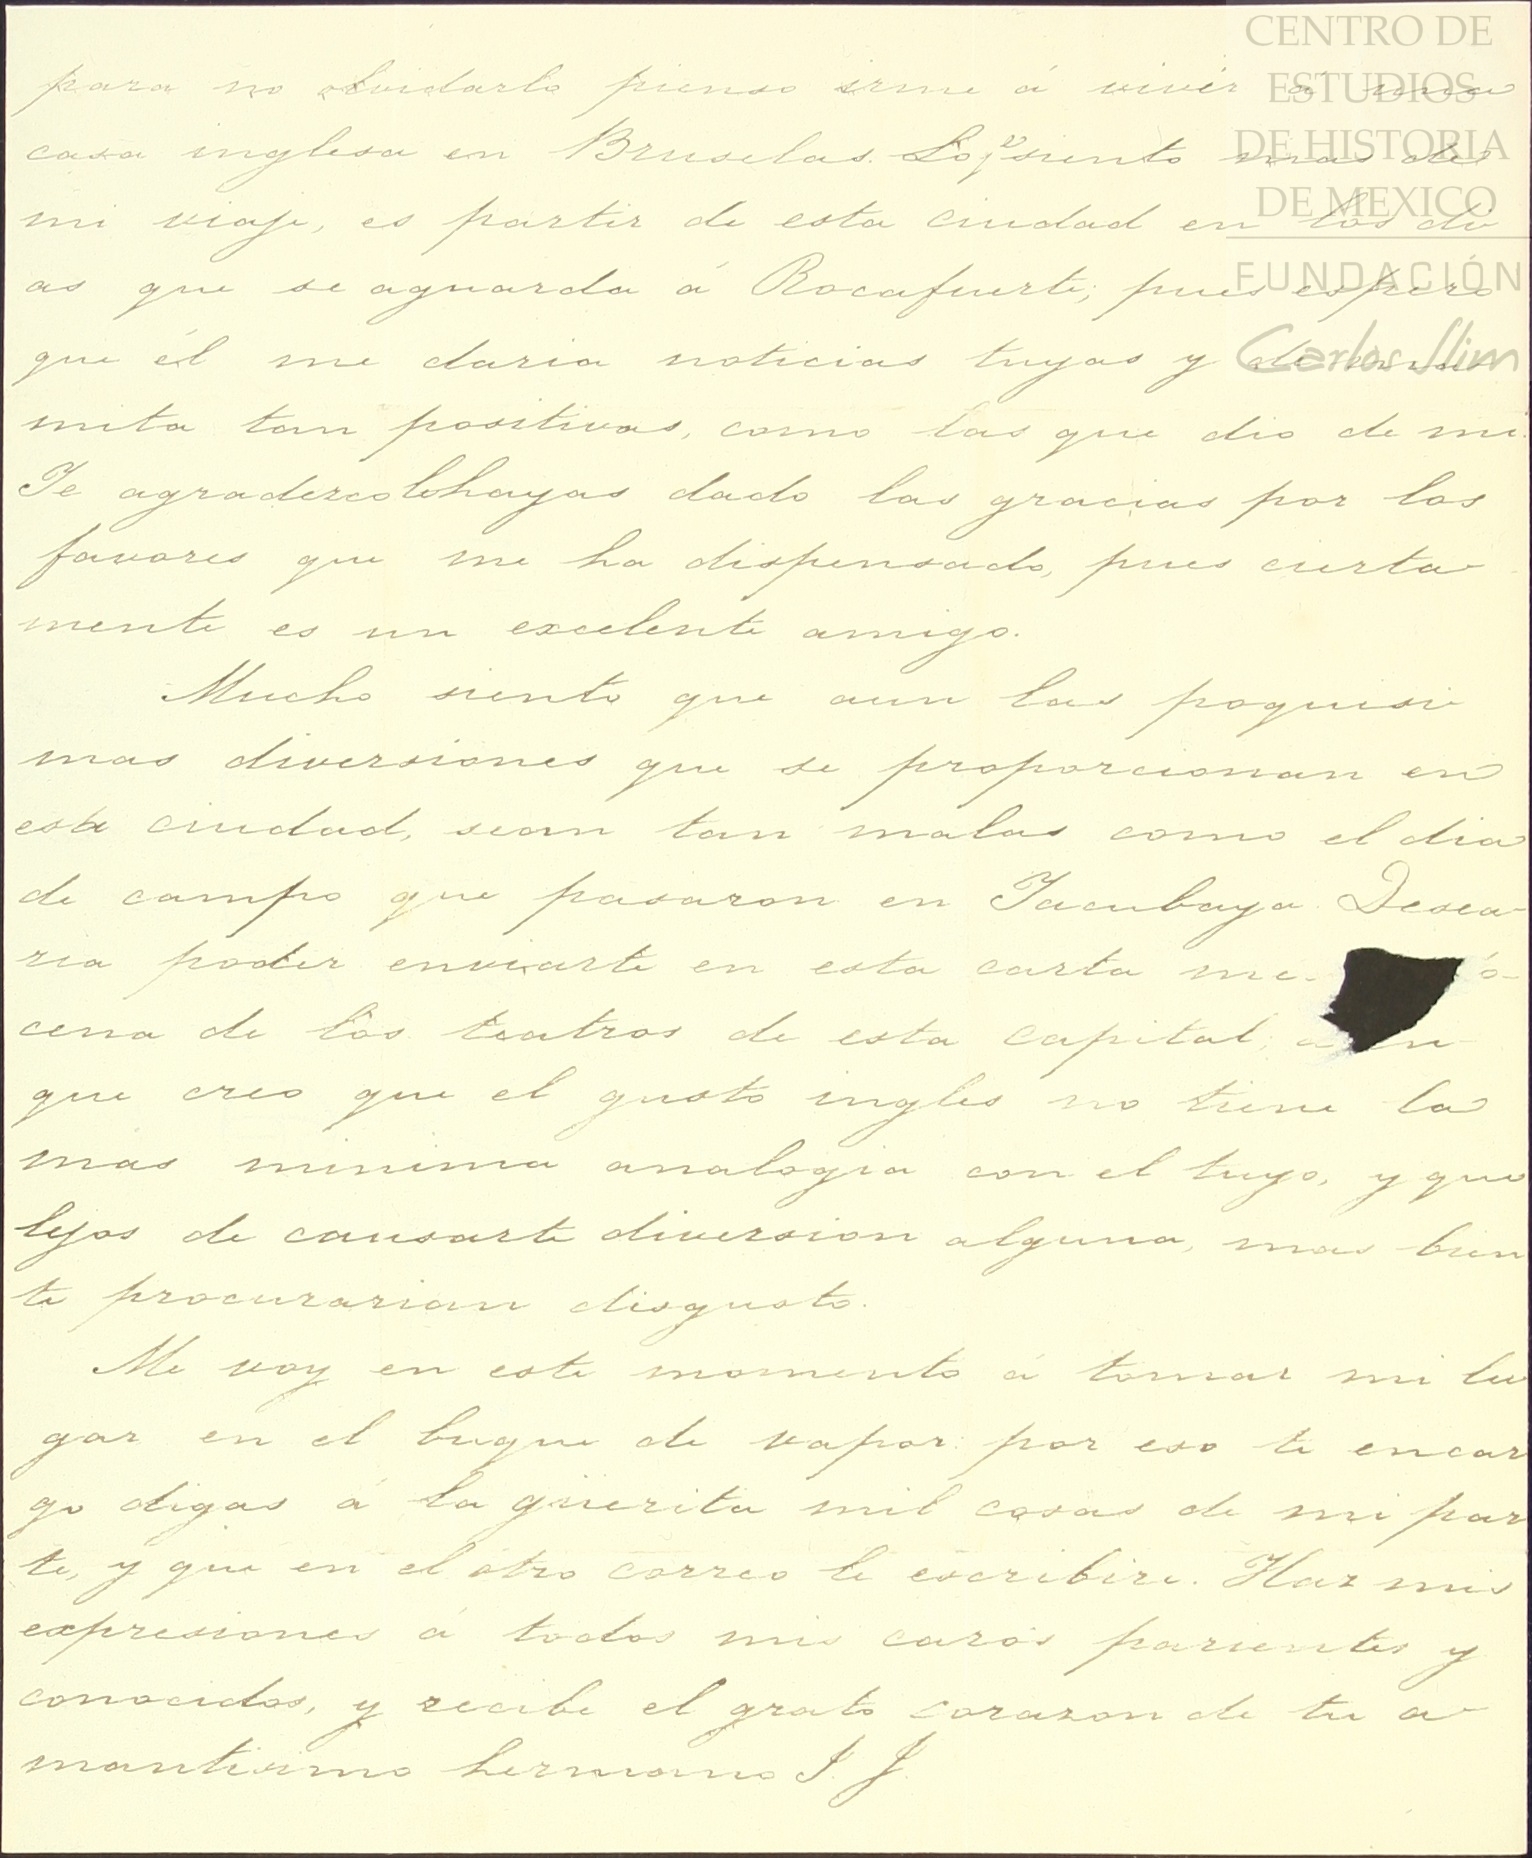 CENTRO DE
ESTUDIOS
DE HISTORIA
DE MEXICO
FUNDACIÓN
Carlos Slim
para no olvidarlo pienso irme á vivir á una
casa inglesa en Bruselas. Lo qe siento mas de
mi viaje, es partir de esta ciudad en los di
as que se aguarda á Rocafuerte; pues espero
que él me daria noticias tuyas y de
mita tan positivas, como las que dio de mi.
Te agradezco lo hayas dado las gracias por los
favores que me ha dispensado, pues cierta
mente es un excelente amigo.
Mucho siento que aun las poquisi
mas diversiones que se proporcionan en
esta ciudad, sean tan malas como el dia
de campo que pasaron en Tacubaya. Desea-
ria poder enviarte en esta carta me-
cena de los teatros de esta capital; aun
que creo que el gusto ingles no tiene la
mas minima analogia con el tuyo, y que
lejos de causarte diversion alguna, mas bien
te procurarian disgusto.
Me voy en este momento á tomar mi lu
gar en el buque de vapor: por eso te encar
go digas á la güerita mil cosas de mi par
te, y que en el otro correo le escribire. Haz mis
expresiones á todos mis caros parientes y
conocidos, y recibe el grato corazon de tu a
mantisimo hermano J. J.